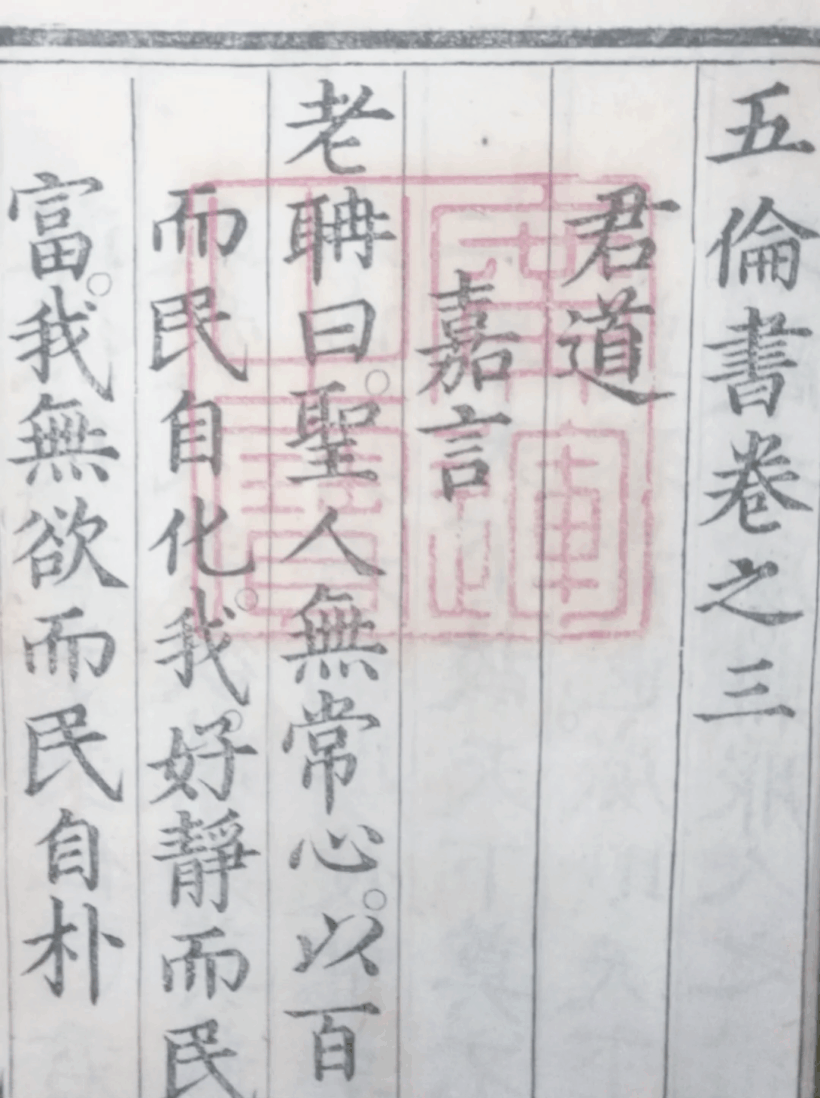 五倫書卷之三
君道
嘉言
老聃曰聖人無常心以百
而民自化我好靜而民
富我無欲而民自朴